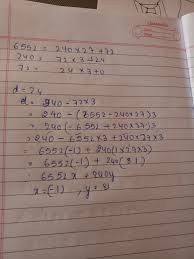 6552 = 240 x 27 + 72
240 = 72 x 3 + 24
72 = 24 x 3 + 0
d = 24
d = 240 - 72 x 3
= 240 - (6552 - 240 x 27) 3
= 240 (- 6552 + 240 x 27) 3
= 240 - 6552 x 3 + 240 x 27 x 3
= 6552 (-1) + 240 (1 x 27 x 3)
= 6552 (-1) + 240 (81)
= 6552 x + 240y
x = (-1) , y = 81